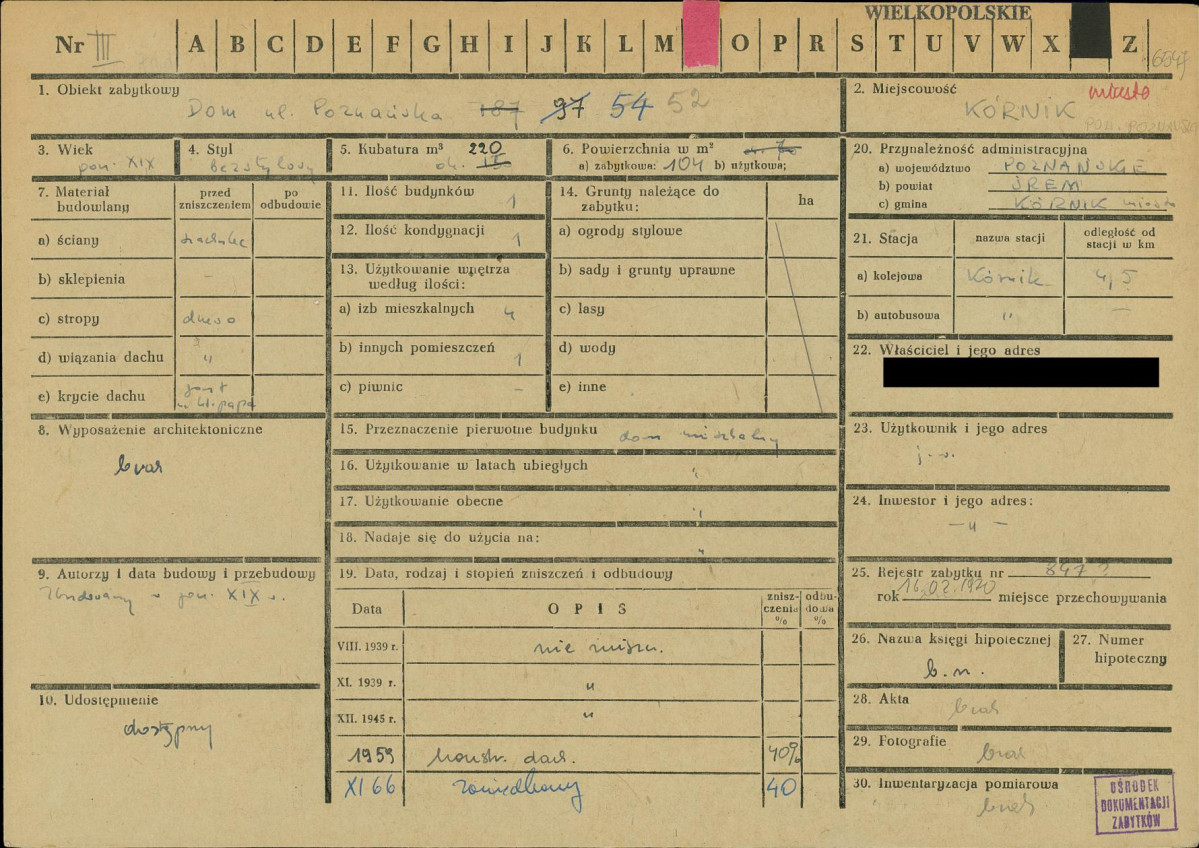 WIELKOPOLSKIE
Nr III A B C D E F G H I J K L M O P R S T U V W X Z
1. Obiekt zabytkowy
Dom ul. Poznańska 187 97 54 52
2. Miejscowość miasto
KÓRNIK
POW. POZNAŃSKI
3. Wiek
poł. XIX
4. Styl
Bezstylowy
5. Kubatura m³ 220
ok.
6. Powierzchnia w m²
a) zabytkowa: 104 b) użytkowa;
20. Przynależność administracyjna
a) województwo POZNAŃSKIE
b) powiat ŚREM
c) gmina KÓRNIK miasto
7. Materiał budowlany
przed zniszczeniem
po odbudowie
a) ściany
b) sklepienia –
c) stropy drewno
d) wiązania dachu "
e) krycie dachu
papa
11. Ilość budynków 1
12. Ilość kondygnacji 1
13. Użytkowanie wnętrza według ilości:
a) izb mieszkalnych 4
b) innych pomieszczeń 1
c) piwnic –
14. Grunty należące do zabytku: ha
a) ogrody stylowe
b) sady i grunty uprawne
c) lasy
d) wody
e) inne
21. Stacja
nazwa stacji
odległość od stacji w km
a) kolejowa Kórnik 4,5
b) autobusowa " –
22. Właściciel i jego adres
8. Wyposażenie architektoniczne
brak
15. Przeznaczenie pierwotne budynku dom mieszkalny
16. Użytkowanie w latach ubiegłych "
17. Użytkowanie obecne "
18. Nadaje się do użycia na: "
23. Użytkownik i jego adres
j. w.
24. Inwestor i jego adres:
– " –
9. Autorzy i data budowy i przebudowy
Zbudowany w poł. XIX w.
19. Data, rodzaj i stopień zniszczeń i odbudowy
Data OPIS zniszczenia % odbudowa %
VIII. 1939 r. nie niszcz.
XI. 1939 r. "
XII. 1945 r. "
1959 konstr. dach. 40%
XI 66 zaniedbany 40
25. Rejestr zabytku nr 847?
rok 16.02.1970 miejsce przechowywania
26. Nazwa księgi hipotecznej
b. n.
27. Numer hipoteczny
10. Udostępnienie
dostępny
28. Akta
brak
29. Fotografie
brak
30. Inwentaryzacja pomiarowa
brak
OŚRODEK
DOKUMENTACJI
ZABYTKÓW